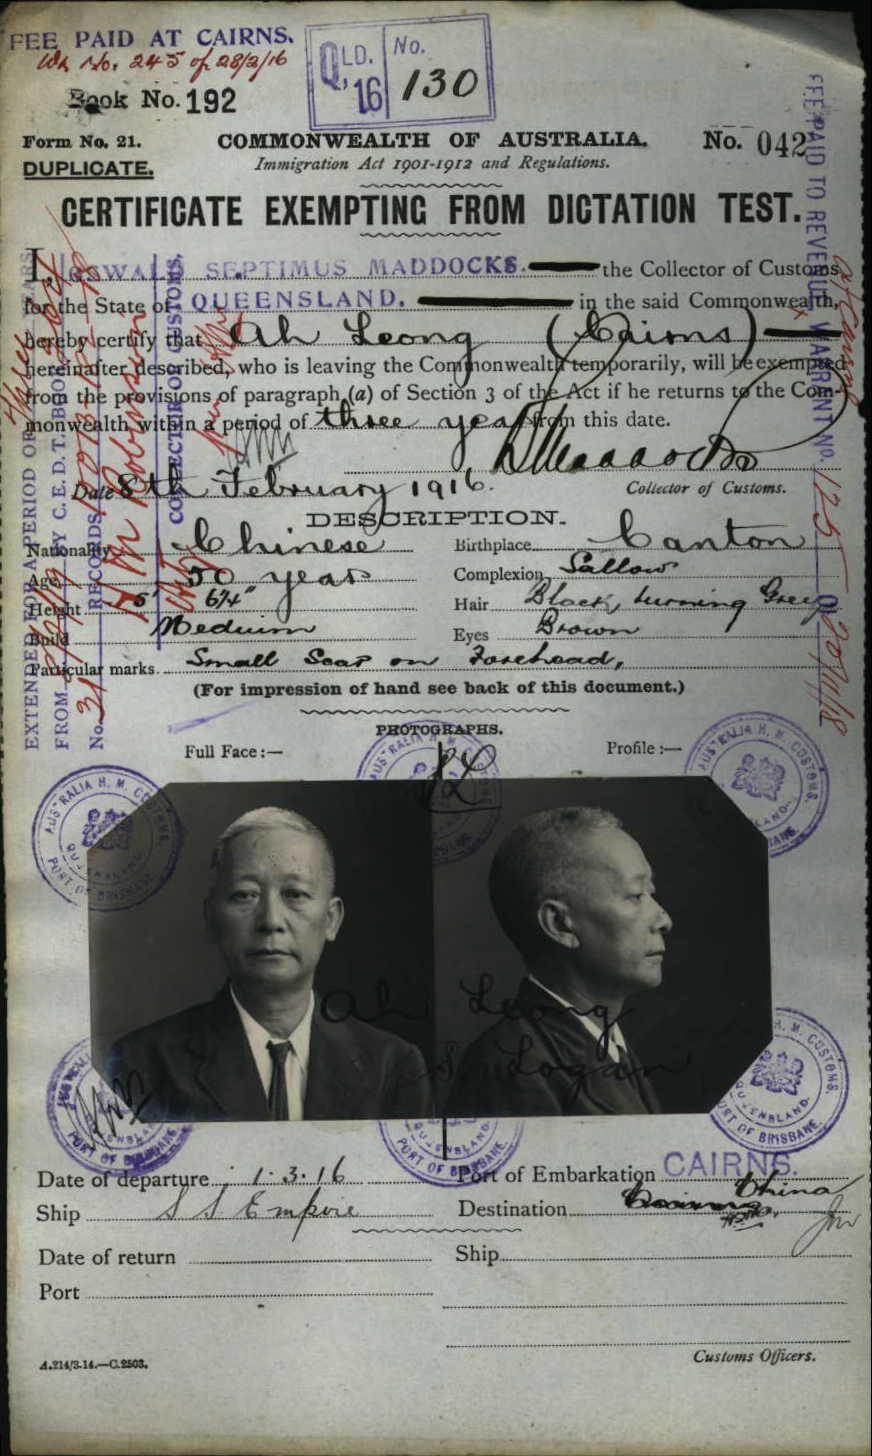 FEE PAID AT CAIRNS.
No. 245 of 28/2/16
QLD. '16 No. 130
Book No. 192
Form No. 21.
COMMONWEALTH OF AUSTRALIA.
No. 042
DUPLICATE.
Immigration Act 1901-1912 and Regulations.
CERTIFICATE EXEMPTING FROM DICTATION TEST.
I, OSWALD SEPTIMUS MADDOCKS. the Collector of Customs
for the State of QUEENSLAND. in the said Commonwealth,
hereby certify that Ah Leong (Cairns)
hereinafter described, who is leaving the Commonwealth temporarily, will be exempted
from the provisions of paragraph (a) of Section 3 of the Act if he returns to the Com-
monwealth within a period of three years from this date.
Date 8th February 1916.
Collector of Customs.
DESCRIPTION.
Nationality Chinese Birthplace Canton
Age 50 years Complexion Sallow
Height 5' 6¾" Hair Black, turning Grey
Build Medium Eyes Brown
Particular marks Small Scar on Forehead,
(For impression of hand see back of this document.)
PHOTOGRAPHS.
Full Face :— Profile :—
Ah Leong
Logan
Date of departure 1.3.16 Port of Embarkation CAIRNS.
Ship S S Empire Destination China
Date of return Ship
Port
Customs Officers.
A.214/3.14.—C.2503.
EXTENDED FOR A PERIOD OF
FROM BY C.E.D.T. BOOK
No. 31 RECORDS
COLLECTOR OF CUSTOMS.
FEE PAID TO REVENUE WARRANT No. 125 OF 20/11/18
at Cairns
AUSTRALIA H. M. CUSTOMS
QUEENSLAND.
PORT OF BRISBANE